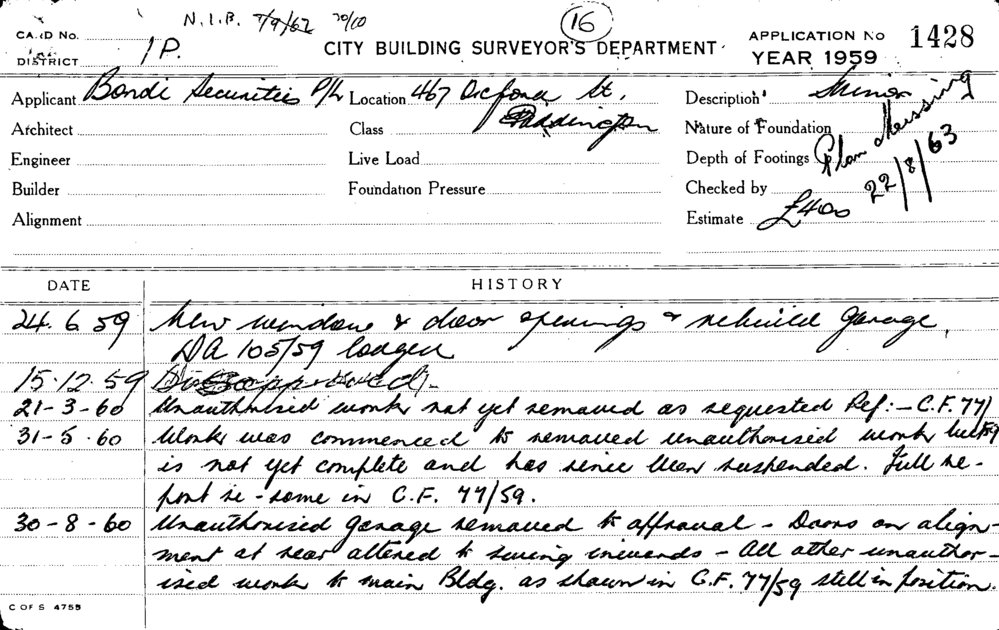 N.I.B. 7/9/62 20/10 16
CARD No.
DISTRICT 1P.
CITY BUILDING SURVEYOR'S DEPARTMENT
APPLICATION No 1428
YEAR 1959
Applicant Bondi Securities P/L Location 467 Oxford St. Description Minor
Architect Class Paddington Nature of Foundation
Engineer Live Load Depth of Footings Plan Missing
Builder Foundation Pressure Checked by 22/8/63
Alignment Estimate £400
DATE HISTORY
24.6.59 New windows & door openings & rebuild garage,
DA 105/59 lodged
15.12.59 Disapproved.
21-3-60 Unauthorised work not yet removed as requested Ref:- C.F. 77/
31-5-60 Work was commenced to removed unauthorised work but 59
is not yet complete and has since been suspended. Full re-
port re-same in C.F. 77/59.
30-8-60 Unauthorised garage removed to approval - Doors on align-
ment at rear altered to swing inwards - All other unauthor-
ised work to main Bldg. as shown in C.F. 77/59 still in position.
C OF S 4755